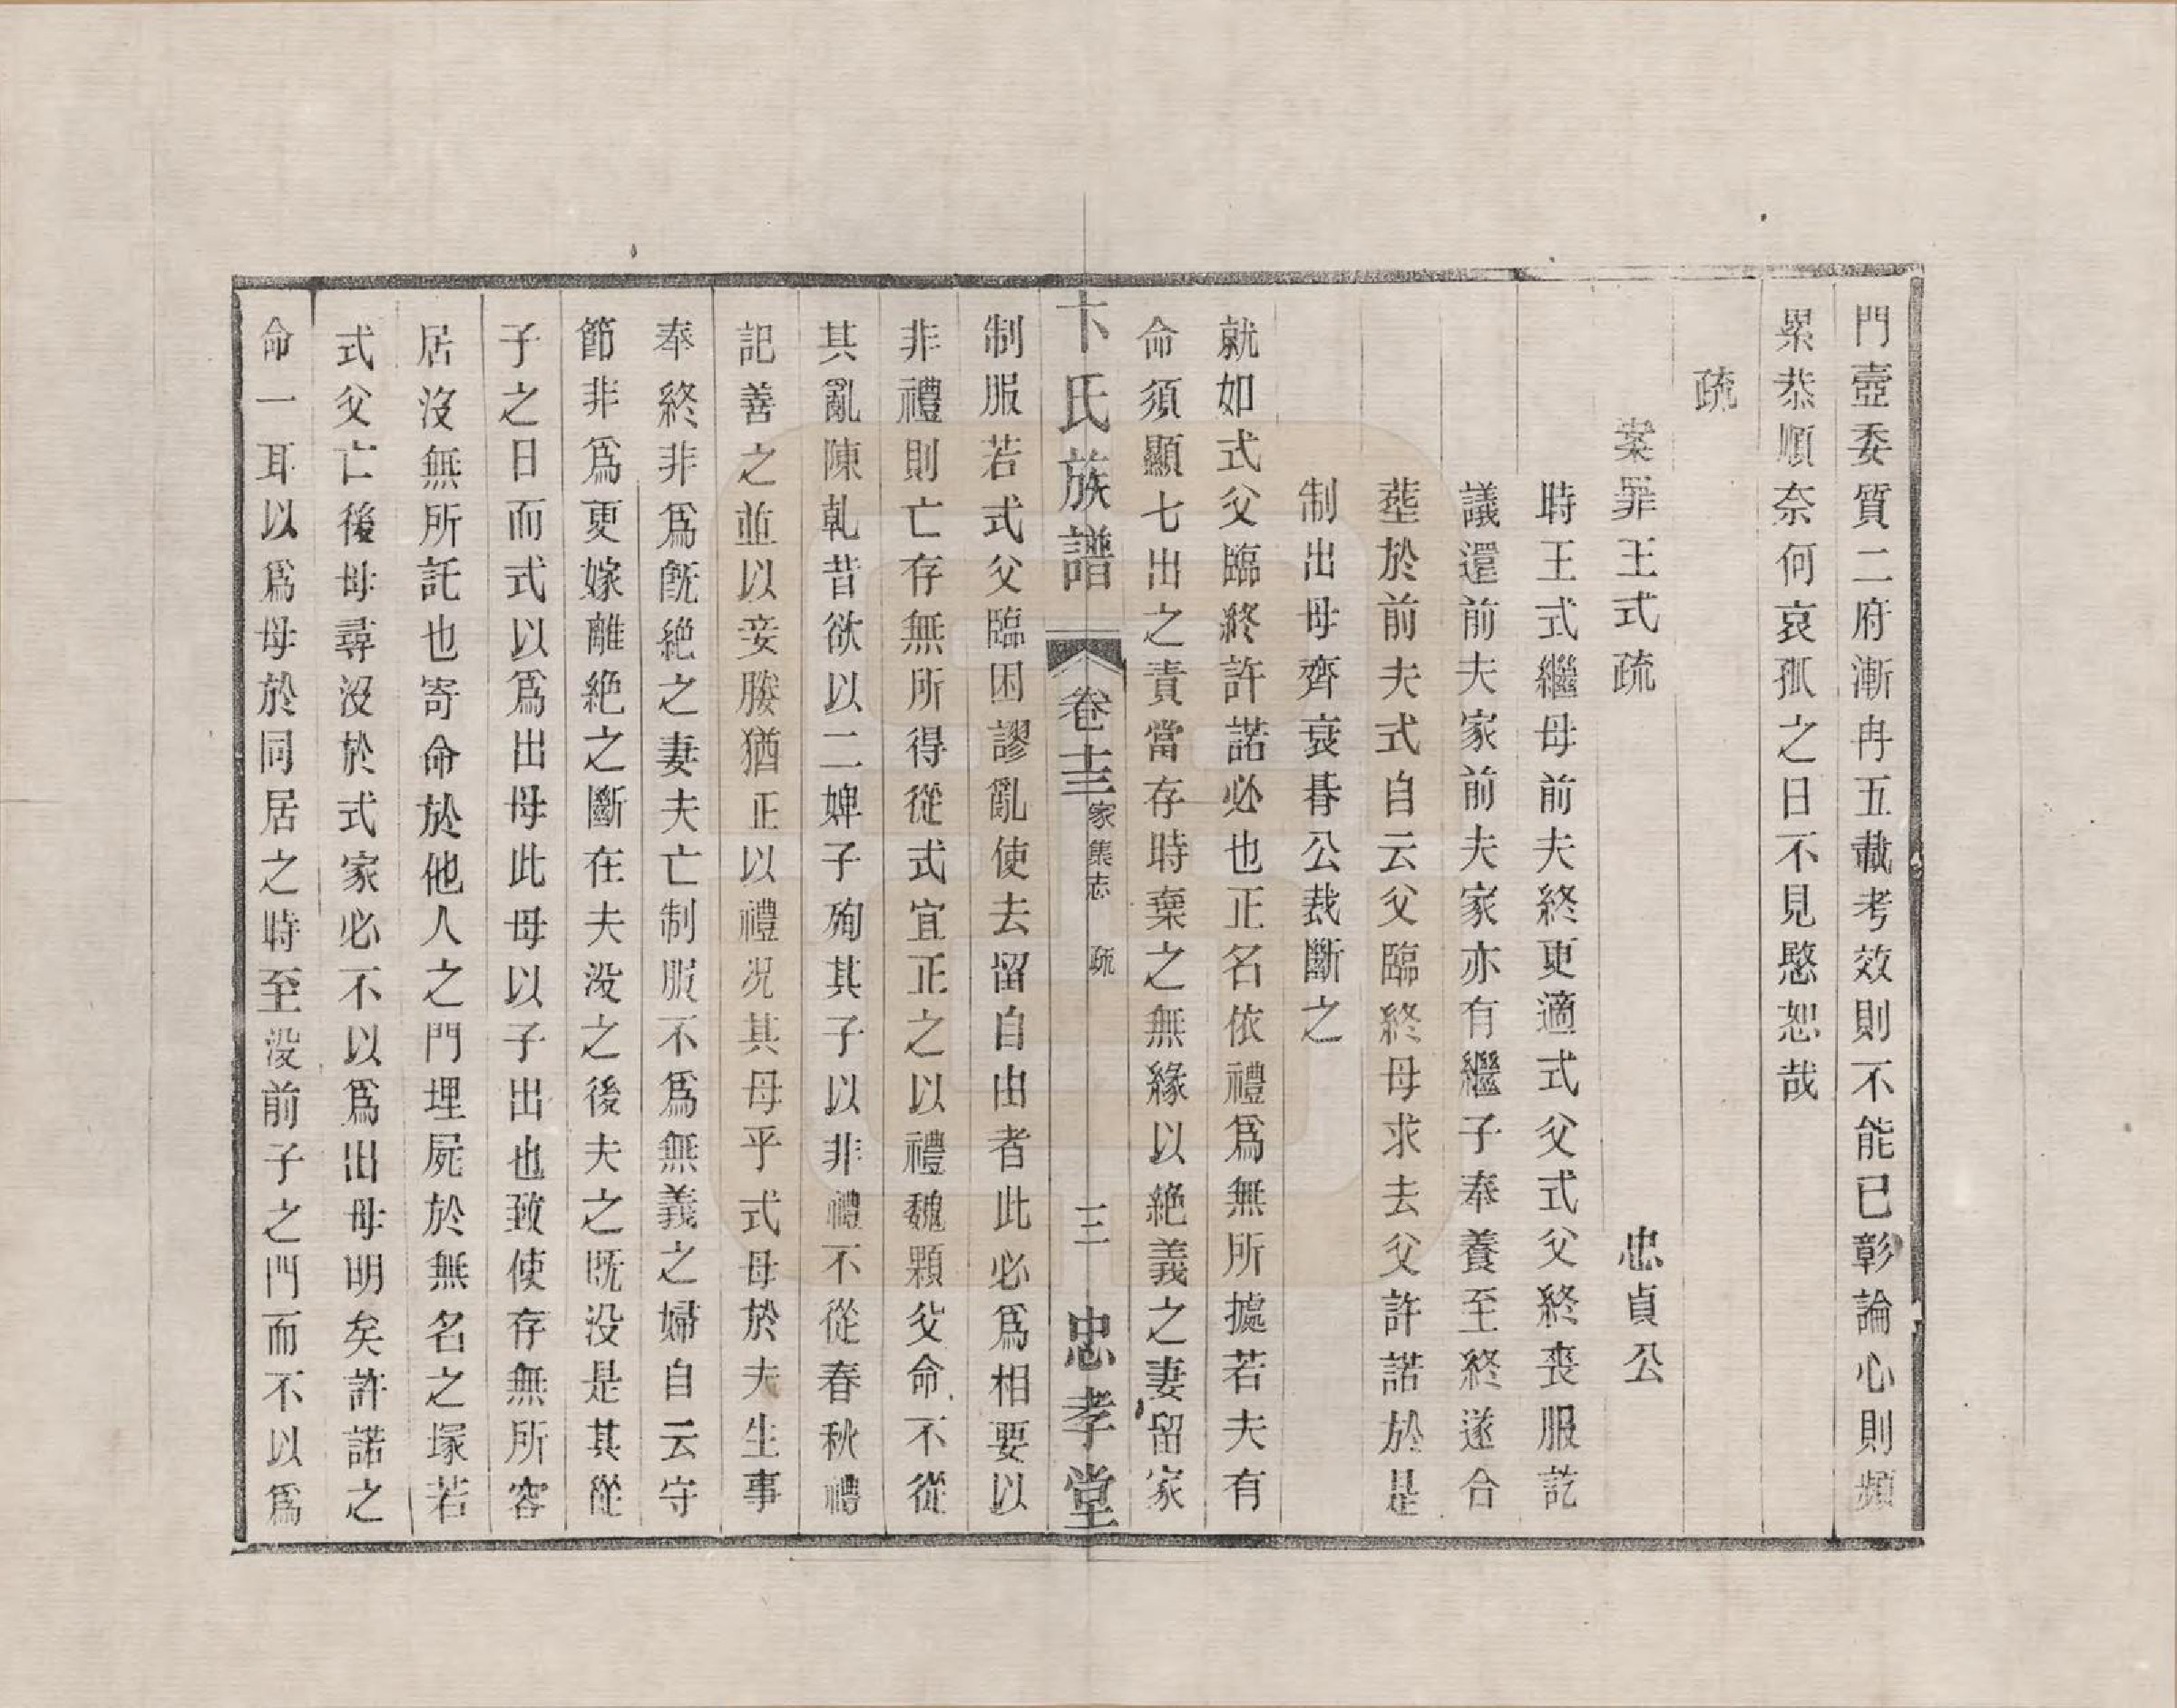 門壼委質二府漸冉五載考效則不能已彰論心則頻
累恭順奈何哀孤之日不見愍恕哉
疏
案罪王式疏 忠貞公
時王式繼母前夫終更適式父式父終喪服訖
議還前夫家前夫家亦有繼子奉養至終遂合
塟於前夫式自云父臨終母求去父許諾於是
制出母齊衰朞公裁斷之
就如式父臨終許諾必也正名依禮爲無所據若夫有
命須顯七出之責當存時棄之無緣以絶義之妻留家
卞氏族譜 卷十三 家集志 疏 三 忠孝堂
制服若式父臨困謬亂使去留自由者此必爲相要以
非禮則亡存無所得從式宜正之以禮魏顆父命不從
其亂陳乹昔欲以二婢子殉其子以非禮不從春秋禮
記善之並以妾媵猶正以禮况其母乎式母於夫生事
奉終非爲旣絶之妻夫亡制服不爲無義之婦自云守
節非爲更嫁離絶之斷在夫没之後夫之既没是其從
子之日而式以爲出母此母以子出也致使存無所容
居没無所託也寄命於他人之門埋屍於無名之塚若
式父亡後母尋没於式家必不以爲出母明矣許諾之
命一耳以爲母於同居之時至没前子之門而不以爲